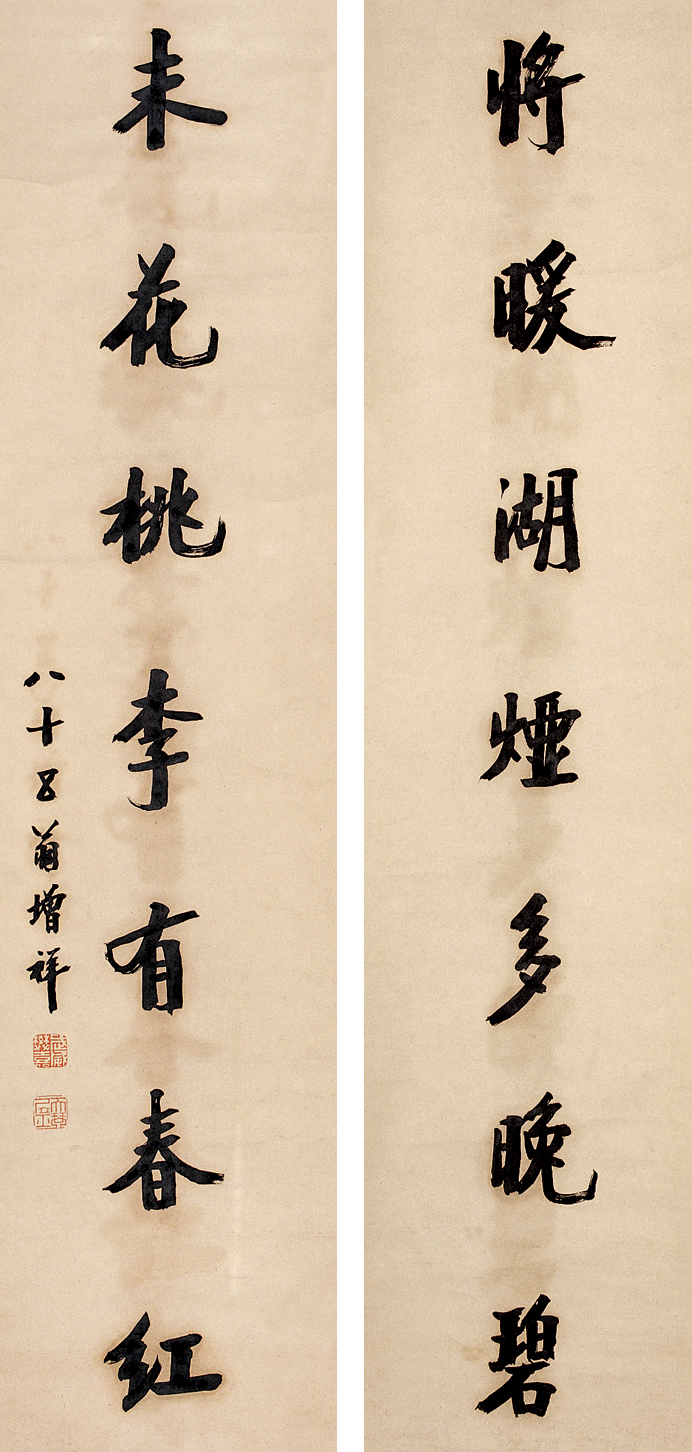 将暖湖煙多晚碧
未花桃李有春紅
八十五翁增祥